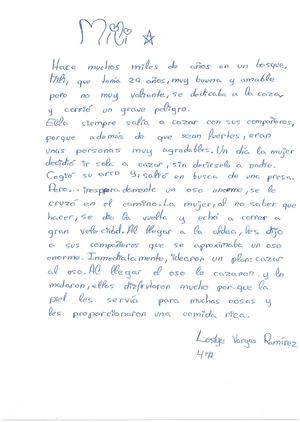 Mili
Hace muchos miles de años en un bosque,
Mili, que tenía 29 años, muy buena y amable
pero no muy valiente, se dedicaba a la caza,
y corrió un grave peligro.
Ella siempre salía a cazar con sus compañeros,
porque además de que sean fuertes, eran
unas personas muy agradables. Un día la mujer
decidió ir sola a cazar, sin decírselo a nadie.
Cogió su arco y salió en busca de una presa.
Pero... inesperadamente un oso enorme, se le
cruzó en el camino. La mujer, al no saber que
hacer, se dio la vuelta y echó a correr a
gran velocidad. Al llegar a la aldea, les dijo
a sus compañeros que se aproximaba un oso
enorme. Inmediatamente, idearon un plan: cazar
al oso. Al llegar el oso lo cazaron y lo
mataron, ellos disfrutaron mucho por que la
piel les servía para muchas cosas y
les proporcionaron una comida rica.
Leslye Vargas Ramírez
4ºA